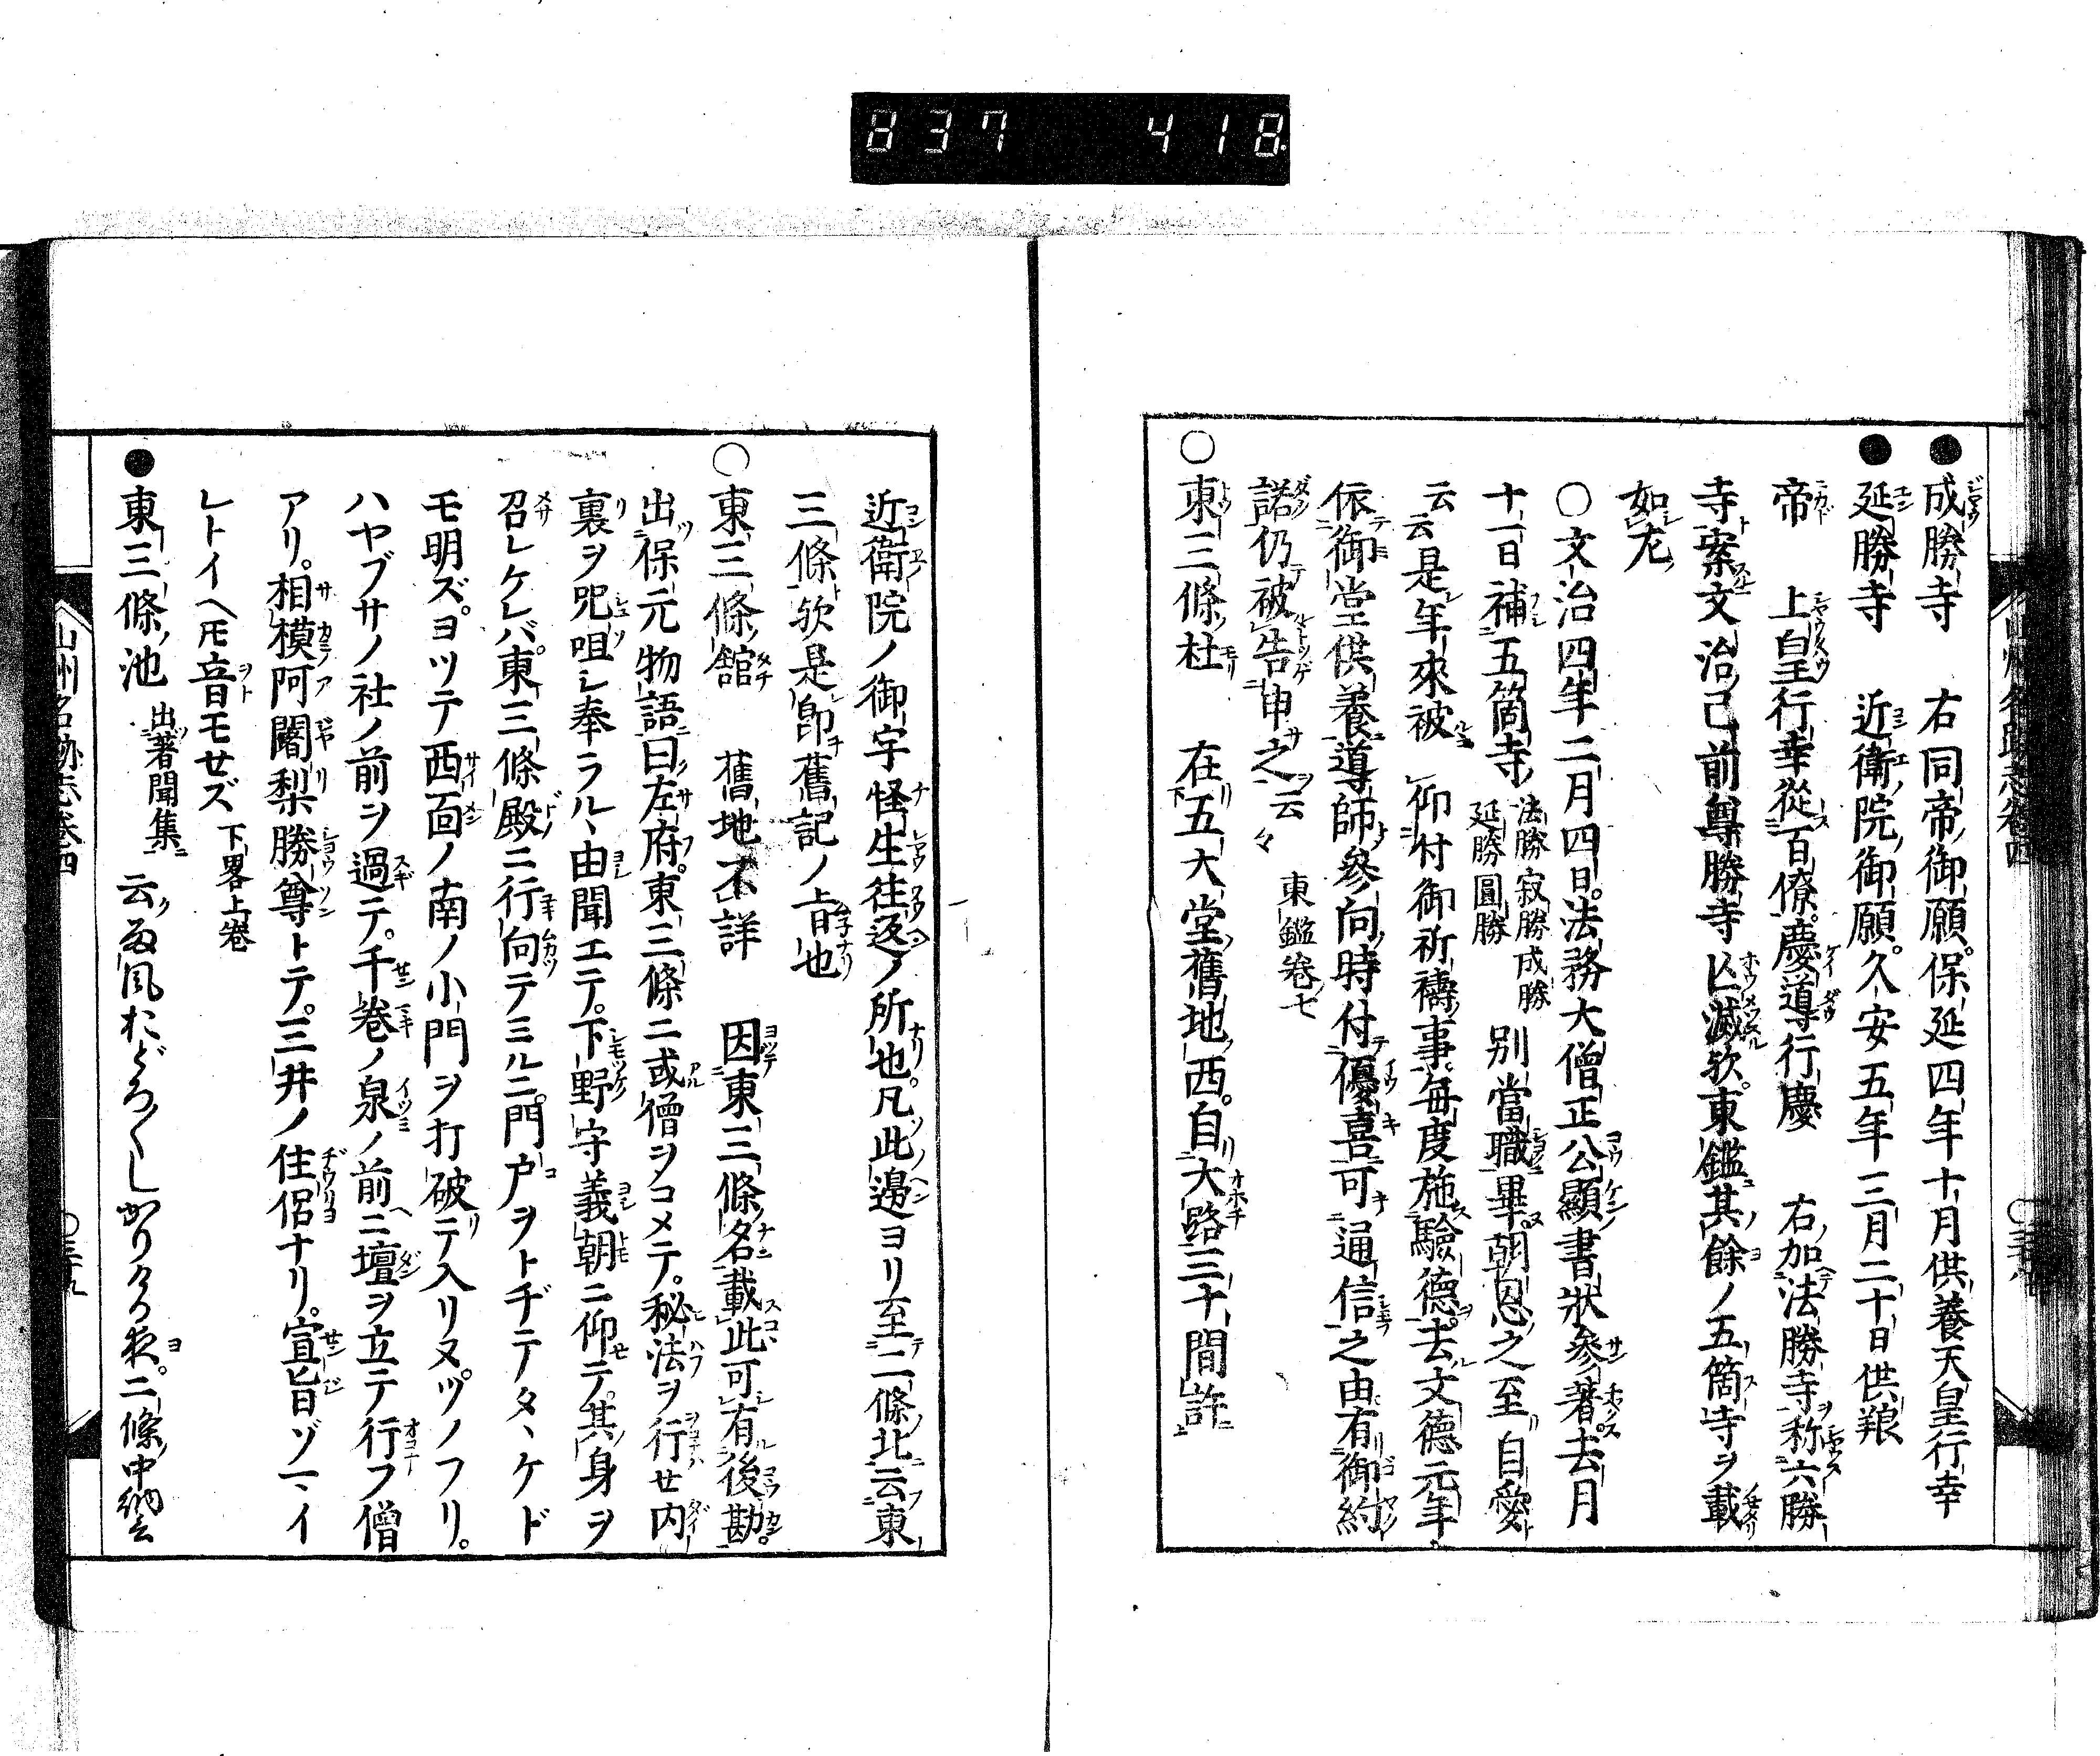 837 418
●成勝寺 右同帝ノ御願。保延四年十月供養天皇行幸
●延勝寺 近衛院ノ御願。久安五年三月二十日供養
帝 上皇行幸從百僚。慶導行慶 右加法勝寺称六勝
寺案文治ノ已前尊勝寺亡滅欤。東鑑其ノ餘ノ五箇寺ヲ載
如左
○文治四年二月四日。法務大僧正公顯書狀參著。去月
十一日補五箇寺 法勝寂勝成勝 延勝圓勝 別當職畢。朝恩之至自愛
云云是年來被仰付御祈禱事。每度施驗德。去文德元年
依御堂供養導師參向時付優喜可通信之由有御約
諾仍被告申之云々 東鑑卷七
○東三條ノ杜 在五大堂舊地ノ西。自大路三十間許
山州名跡志卷四
近衛院ノ御宇怪生往返ノ所也。凡此邊ヨリ至二條ノ北云東
三條欤是卽舊記ノ旨也
○東三條ノ舘 舊地不詳 因東三條ノ名載此可有後勘。
出保元物語曰左府。東三條ニ或僧ヲコメテ。秘法ヲ行セ內
裏ヲ咒咀シ奉ラルヽ由聞エテ。下野守義朝ニ仰テ。其身ヲ
召レケレバ。東三條殿ニ行向テミルニ。門戸ヲトヂテタヽケド
モ明ズ。ヨツテ西面ノ南ノ小門ヲ打破テ入リヌ。ツノフリ。
ハヤブサノ社ノ前ヲ過テ。千卷ノ泉ノ前ニ壇ヲ立テ行フ僧
アリ。相模阿闍梨勝尊トテ。三井ノ住侶ナリ。宣旨ゾマイ
レトイヘモ音モせズ 下畧上卷
●東三條ノ池 出著聞集ニ云ノ雨風おどろ〱しかりける夜。二條ノ中納言
山州名跡志卷四